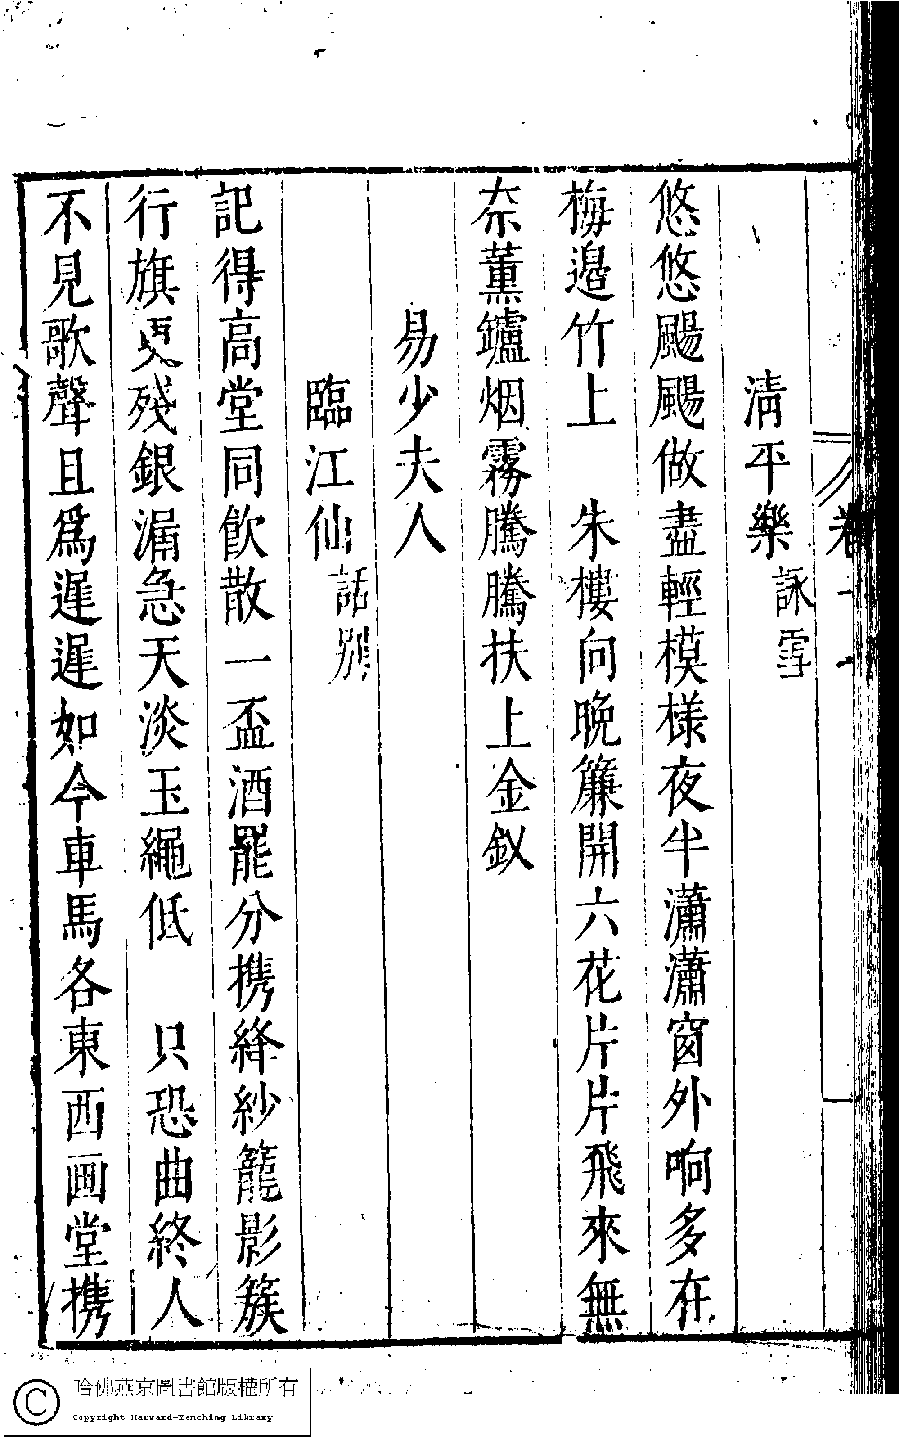 清平樂 詠雪
悠悠颺颺做盡輕模樣夜半瀟瀟窗外响多在
梅邊竹上　朱樓向晚簾開六花片片飛來無
奈薰鑪烟霧騰騰扶上金釵
易少夫人
臨江仙 話別
記得高堂同飲散一盃酒罷分携絳紗籠影簇
行旗更殘銀漏急天淡玉繩低　只恐曲終人
不見歌聲且爲遲遲如今車馬各東西画堂携
哈佛燕京圖書館版權所有
Copyright Harvard-Yenching Library